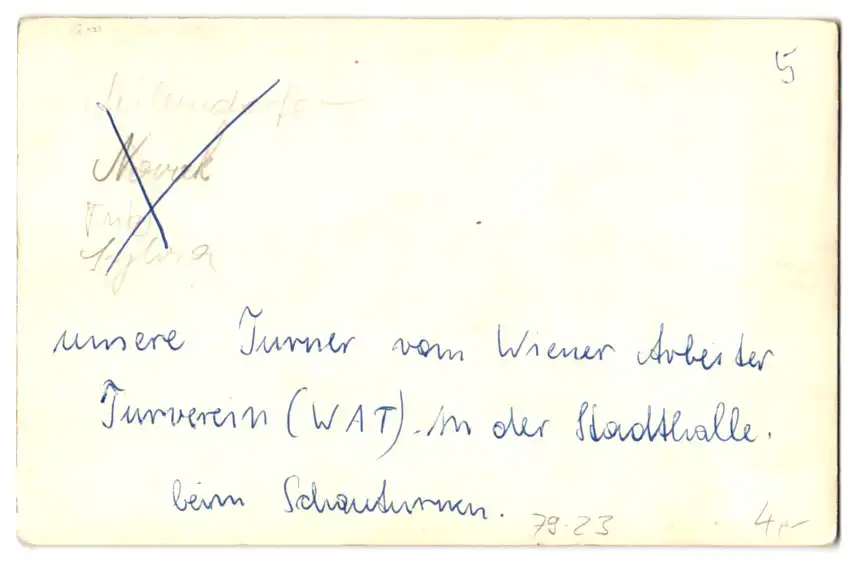 5
Novak
Fritz
Sylvia
unsere Turner vom Wiener Arbeiter
Turverein (WAT). In der Stadthalle.
beim Schauturnen.
79-23
4,-